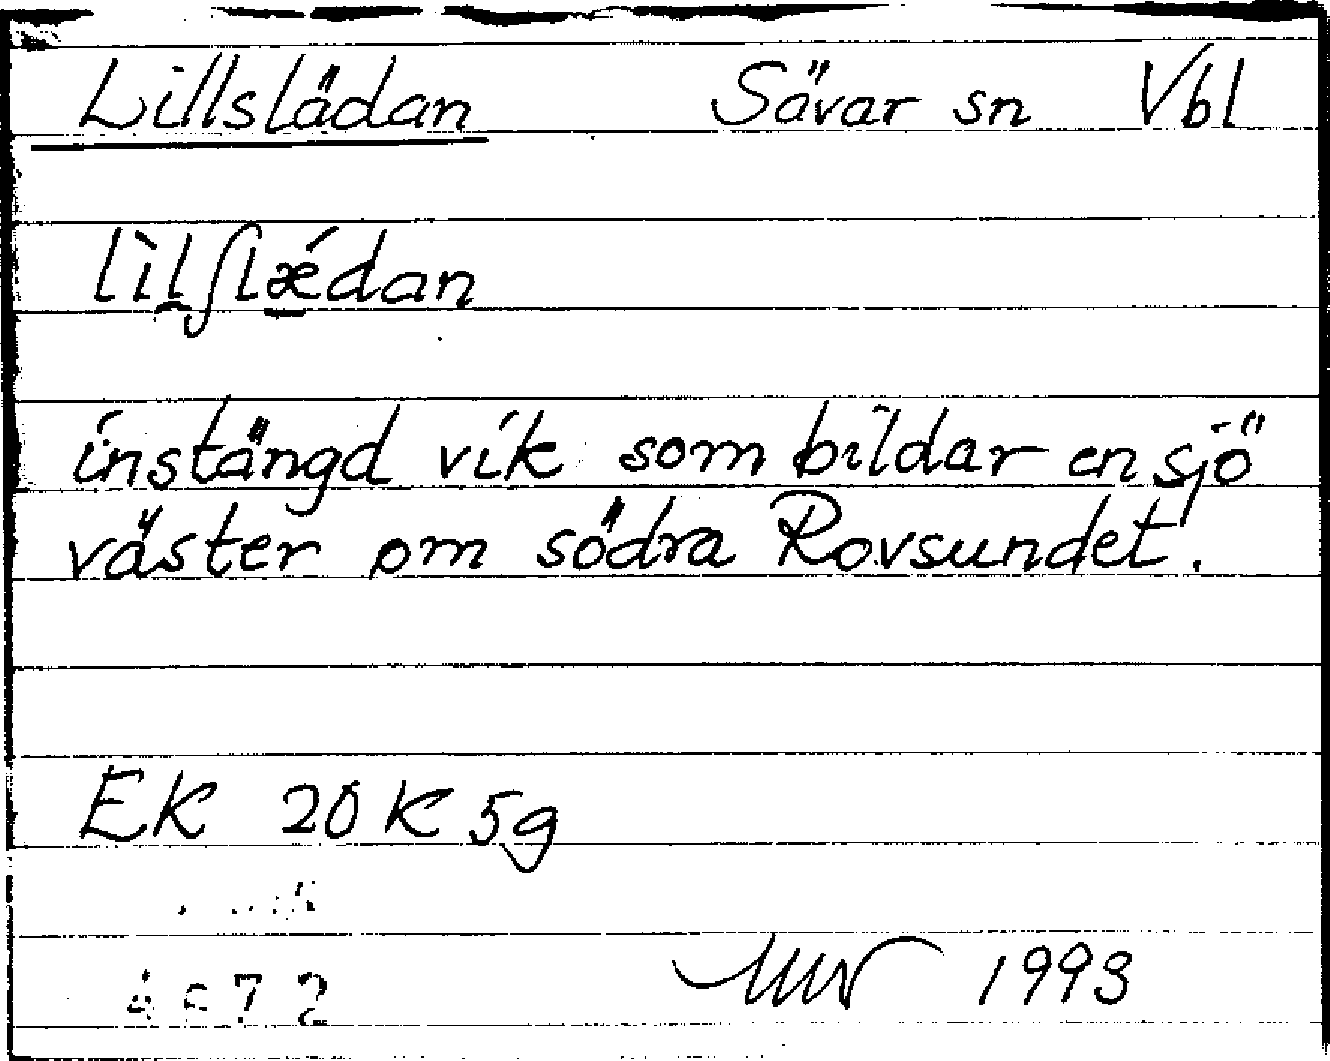 Lillslädan Sävar sn Vbl
lìlʃlǽdan
instängd vik som bildar en sjö
väster om södra Rovsundet.
EK 20K 5g
1993